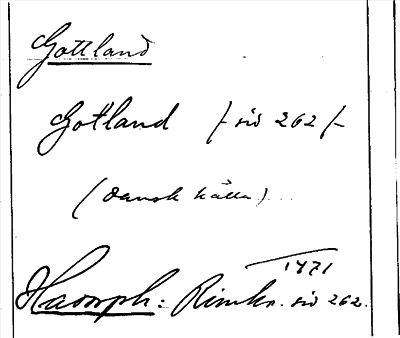 Gottland
Gotland /- sid 262 /-
(Dansk källa)
1471
Hadorph: Rimkr. sid 262.